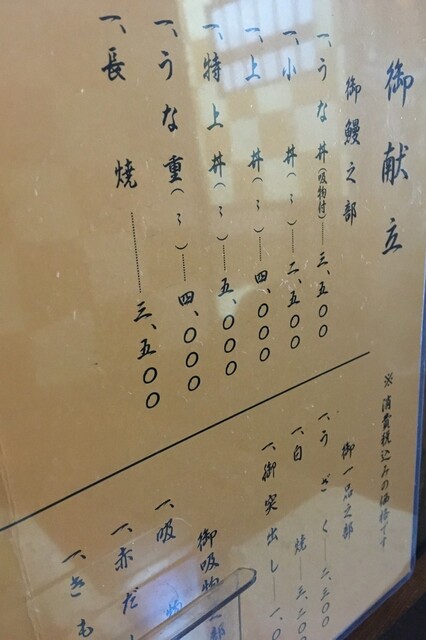 御献立
御鰻之部
一、うな丼(吸物付)——三、五〇〇
一、小丼(〃)——二、五〇〇
一、上丼(〃)……四、〇〇〇
一、特上丼(〃)……五、〇〇〇
一、うな重(〃)……四、〇〇〇
一、長焼………三、五〇〇
※消費税込みの価格です
御一品之部
一、うざく——二、三〇〇
一、白焼——三、二〇〇
一、御突出し——一、〇
御吸物 部
一、吸物
一、赤だし
一、きも